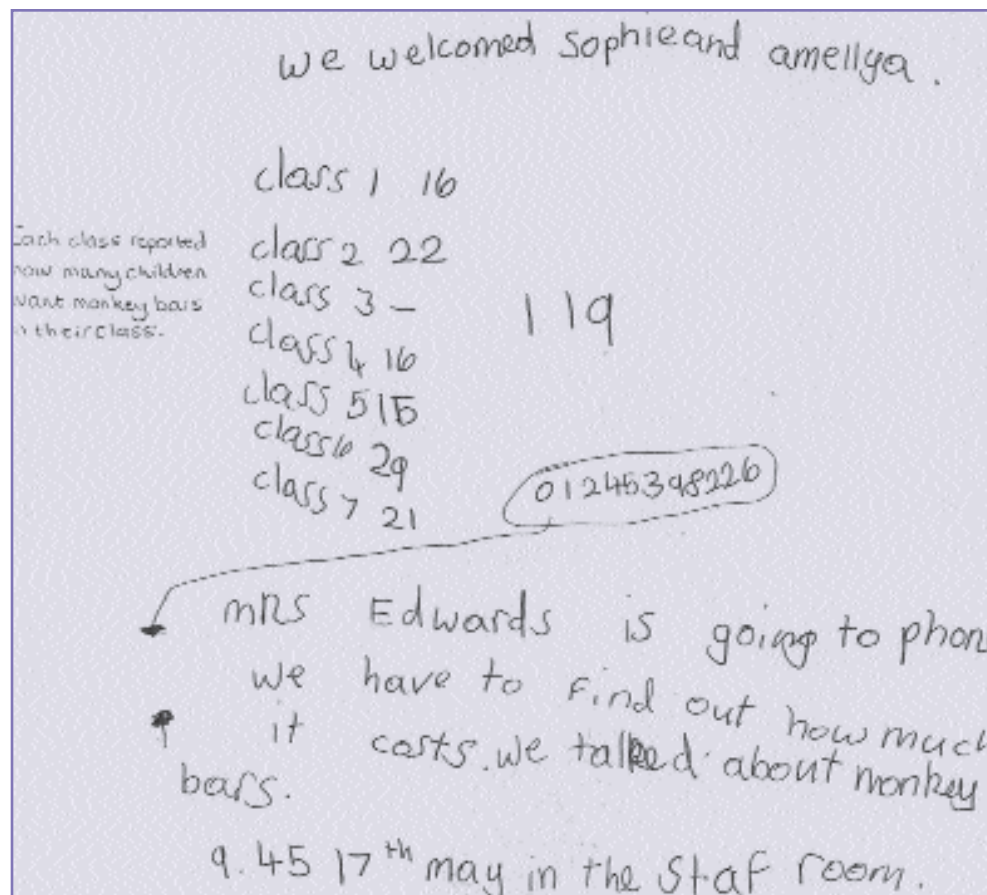 we welcomed Sophie and amellya.
class 1 16
Each class reported
how many children
want monkey bars
in their class.
class 2 22
class 3 -
class 4 16
class 5 15
class 6 29
class 7 21
119
01245398226
mRS Edwards is going to phon
we have to Find out how much
it costs. we talked about monkey
bars.
9.45 17th may in the Staf room.